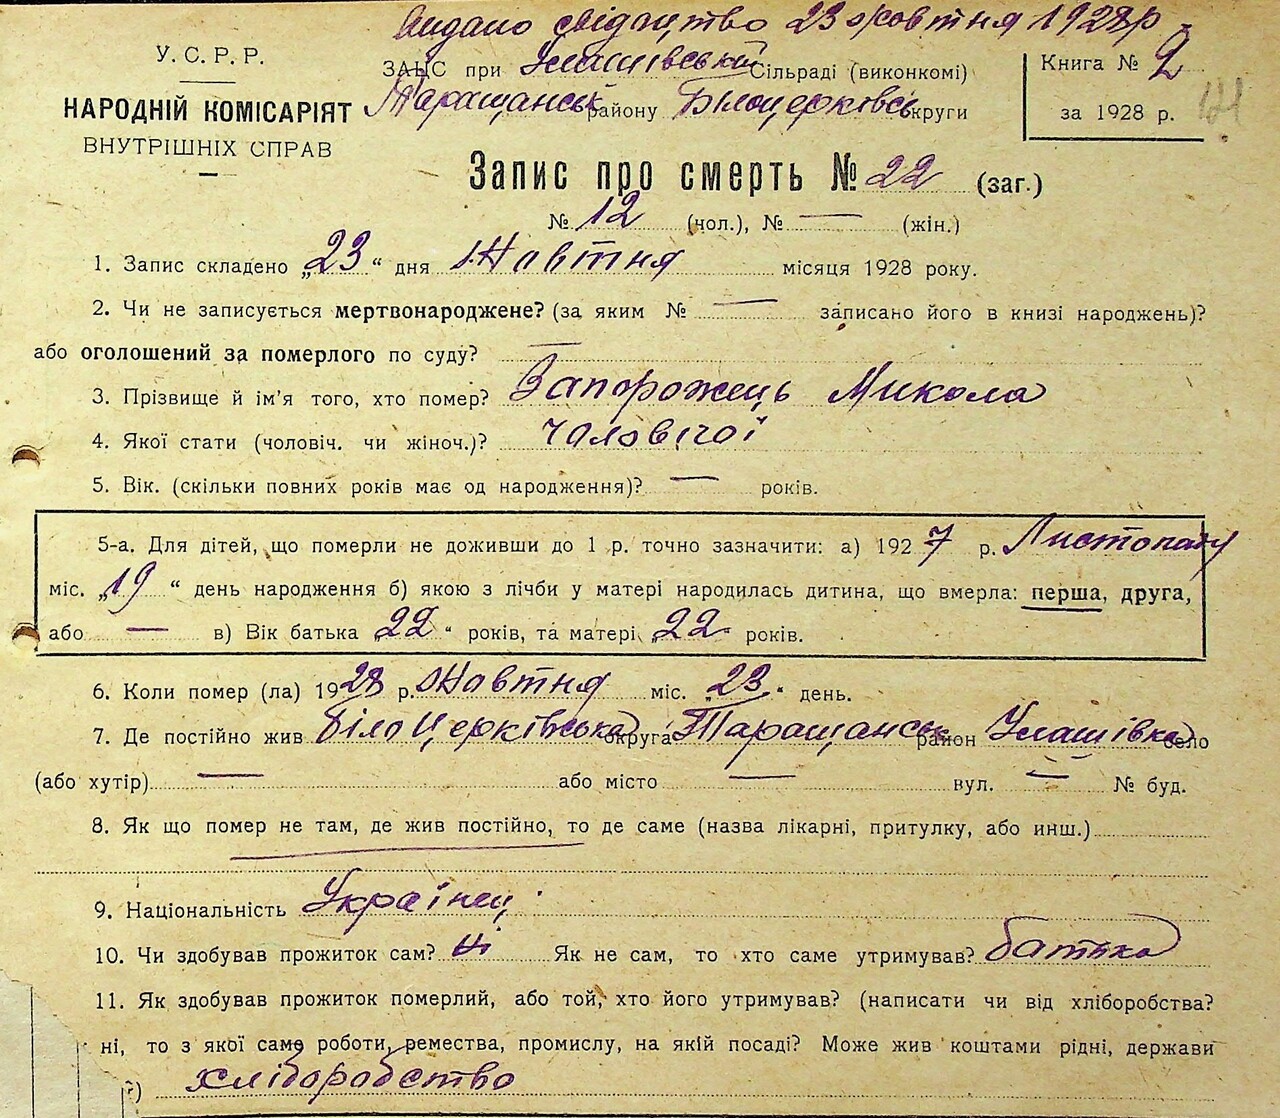 Видано свідацтво 23 жовтня 1928 р
У.С.Р.Р.
НАРОДНІЙ КОМІСАРІЯТ
ВНУТРІШНІХ СПРАВ
ЗАЦС при Улашівській Сільраді (виконкомі)
Таращанськ району Білоцерківсь округи
Книга № 2
за 1928 р.
Запис про смерть № 22 (заг.)
№ 12 (чол.), № — (жін.)
1. Запис складено „23“ дня Жовтня місяця 1928 року.
2. Чи не записується мертвонароджене? (за яким № — записано його в книзі народжень)?
або оголошений за померлого по суду? —
3. Прізвище й ім'я того, хто помер? Запорожець Микола
4. Якої стати (чоловіч. чи жіноч.)? чоловічої
5. Вік. (скільки повних років має од народження)? — років.
5-а. Для дітей, що померли не доживши до 1 р. точно зазначити: а) 1927 р. Листопаду
міс. „19“ день народження б) якою з лічби у матері народилась дитина, що вмерла: перша, друга,
або — в) Вік батька „22“ років, та матері 22 років.
6. Коли помер (ла) 1928 р. Жовтня міс. „23“ день.
7. Де постійно жив Білоцерківська округа Таращанськ район Улашівка село
(або хутір) — або місто — вул. — № буд.
8. Як що помер не там, де жив постійно, то де саме (назва лікарні, притулку, або инш.)
9. Національність Українец
10. Чи здобував прожиток сам? ні Як не сам, то хто саме утримував? батько
11. Як здобував прожиток померлий, або той, хто його утримував? (написати чи від хліборобства?
ні, то з якої саме роботи, ремества, промислу, на якій посаді? Може жив коштами рідні, держави
?) хліборобство